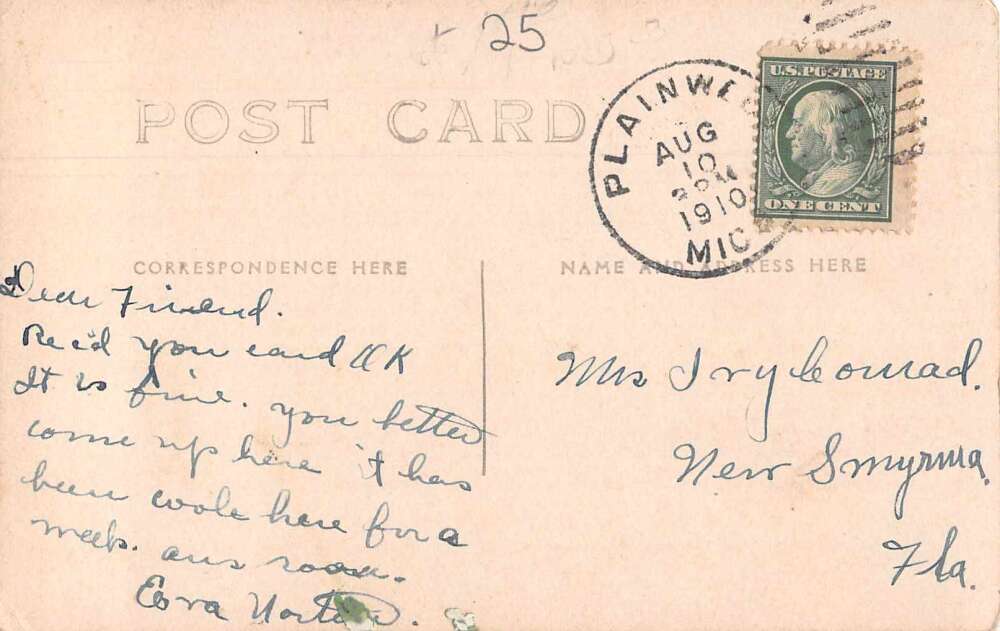 25
POST CARD
PLAINWELL
AUG
10
2 PM
1910
MICH
U.S. POSTAGE
ONE CENT
CORRESPONDENCE HERE
NAME AND ADDRESS HERE
Dear Friend.
Rec'd you card OK
It is fine. you better
come up here it has
been coole here for a
week. ans soon.
Mrs Ivy Conrad.
New Smyrna.
Fla.